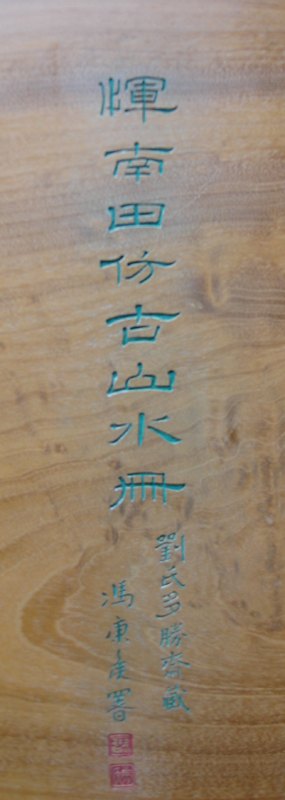 惲南田仿古山水冊
劉氏多勝齋藏
馮康侯署